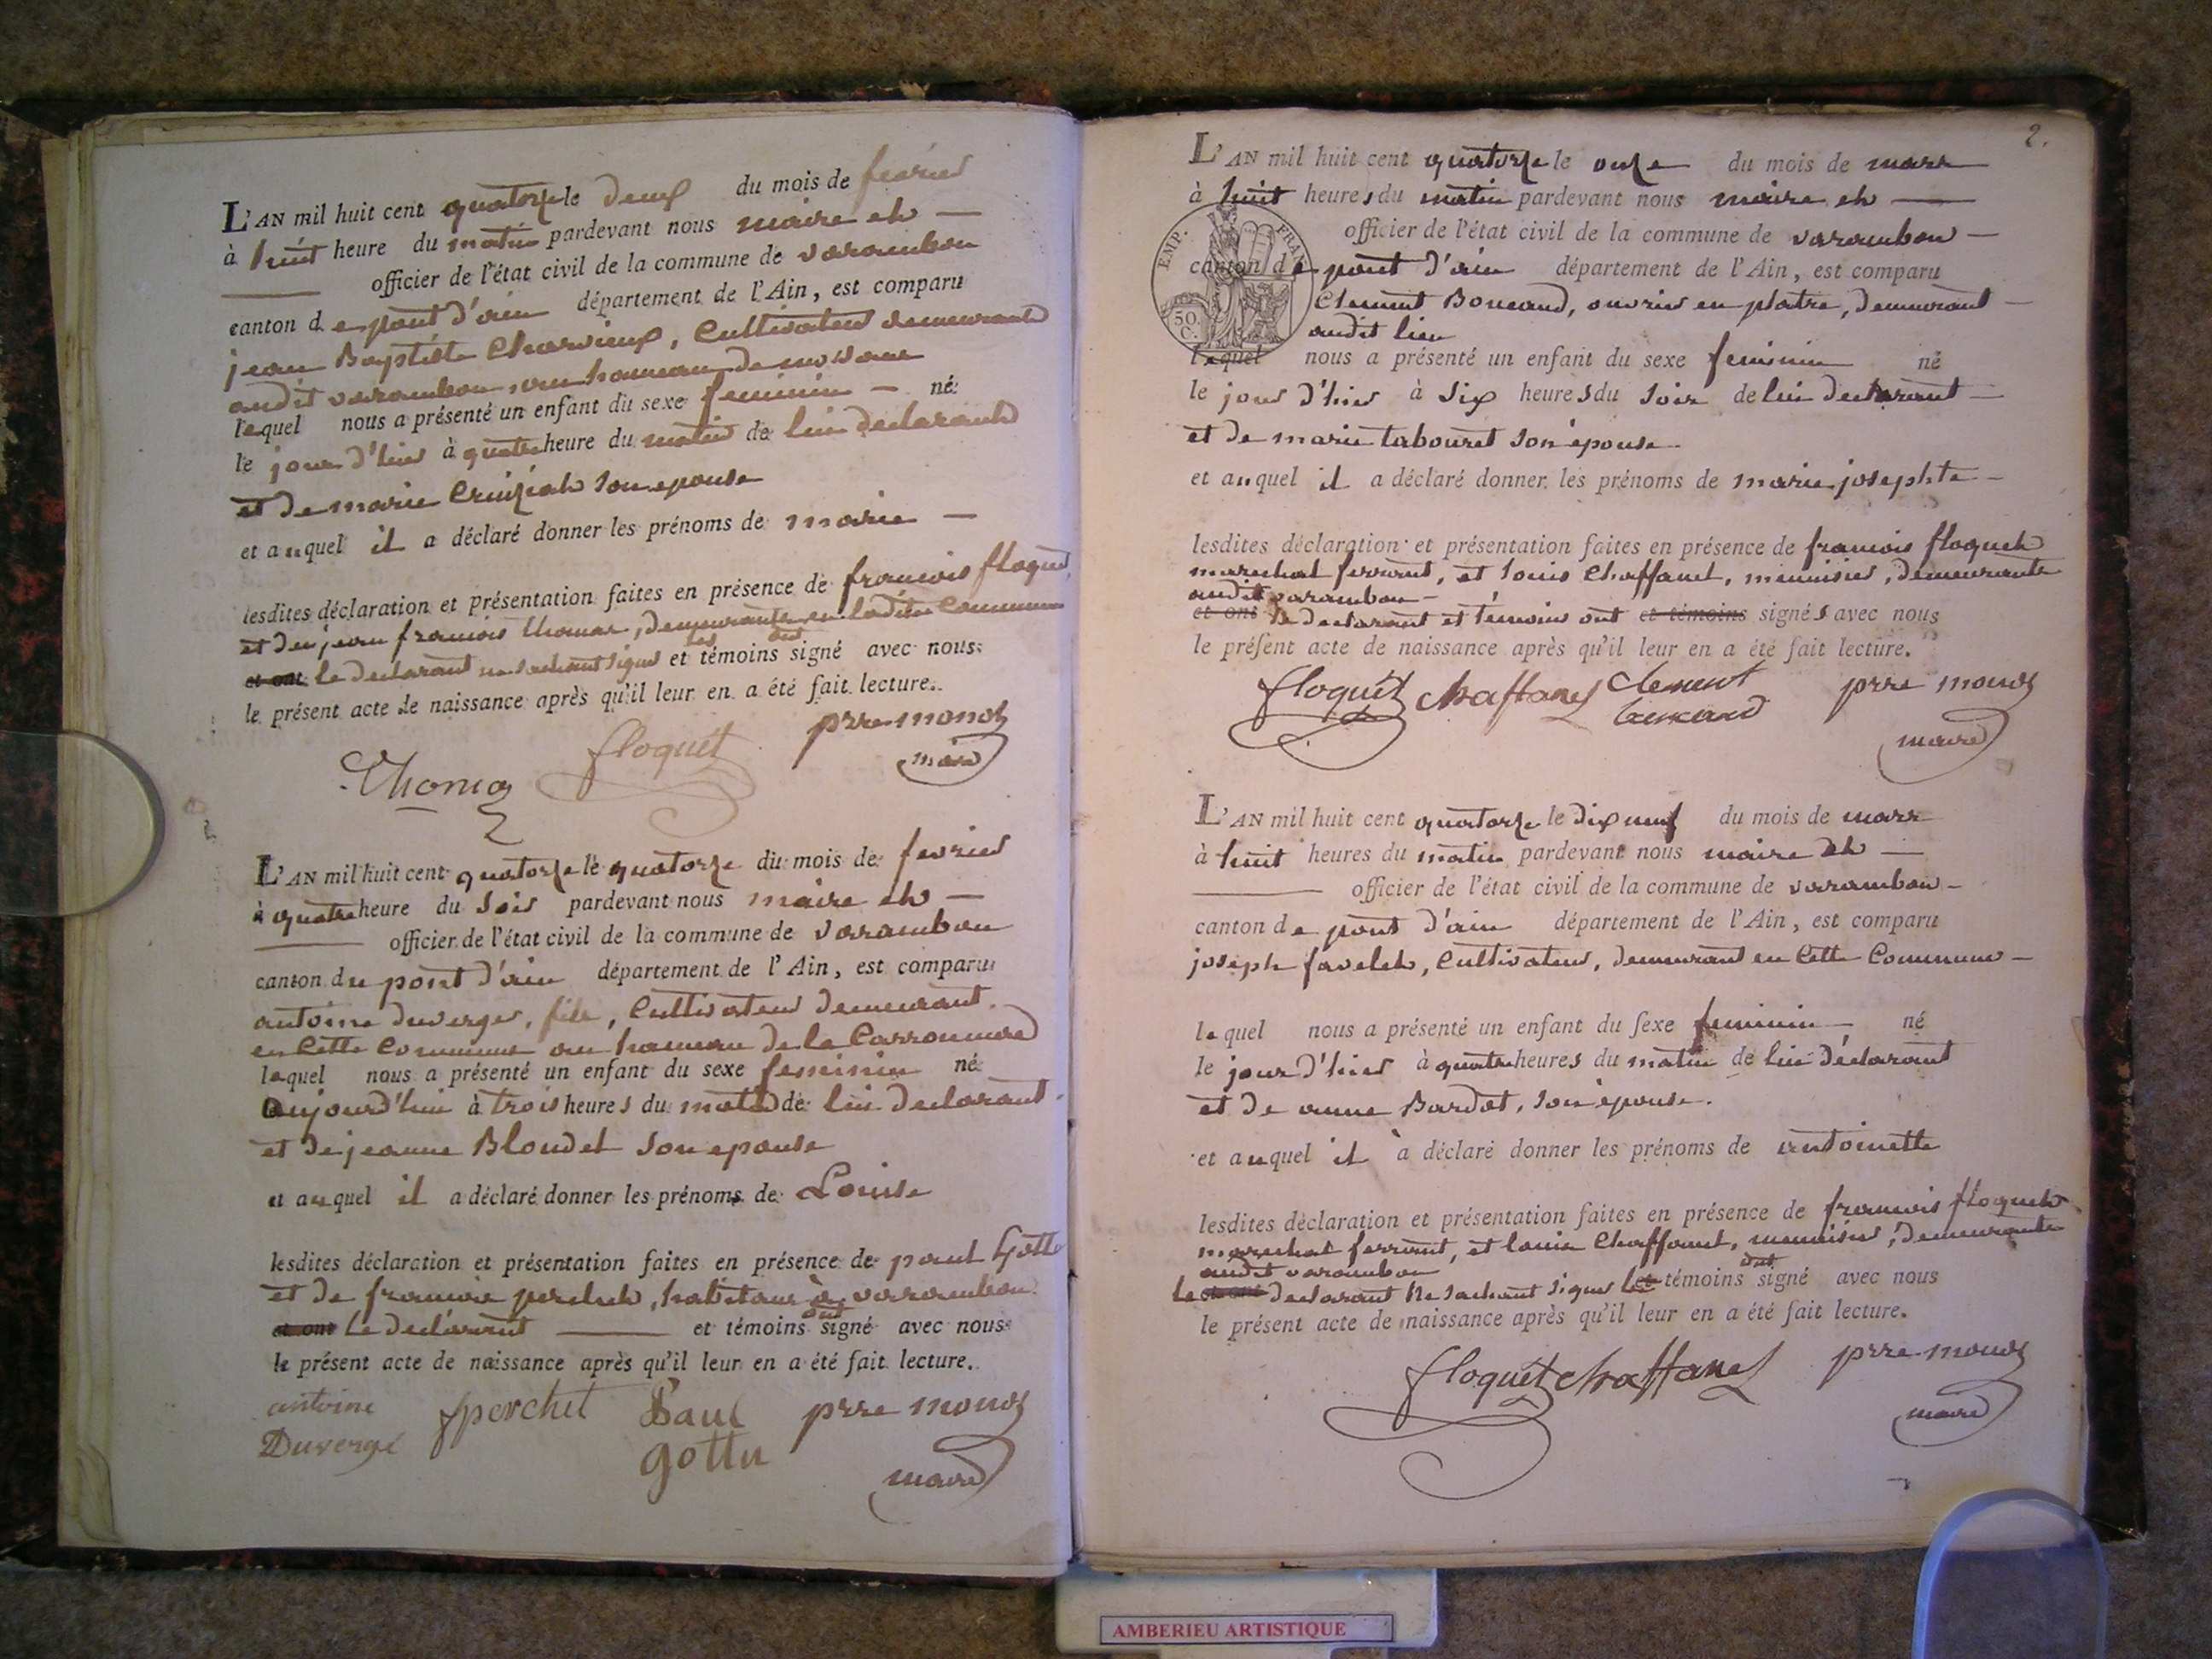 L'AN mil huit cent quatorze le deux du mois de fevrier
à huit heure du matin pardevant nous maire et —
officier de l'état civil de la commune de varambon
canton de pont d'ain département de l'Ain, est comparu
jean Baptiste Charvieux, Cultivateur demeurant
audit varambon au hameau de
lequel nous a présenté un enfant du sexe feminin — né
le jour d'hier à quatre heure du matin de lui declarant
et de marie son epouse
et auquel il a déclaré donner les prénoms de marie —
lesdites déclaration et présentation faites en présence de francois floquet
et de jean francois thomas, demeurants en ladite Commune
et ont le declarant ne sachant signer et les témoins ont signé avec nous
le présent acte de naissance après qu'il leur en a été fait lecture.
Thomas floquet prre monoz
maire
L'AN mil huit cent quatorze le quatorze du mois de fevrier
à quatre heure du soir pardevant nous maire et —
officier de l'état civil de la commune de varambon
canton du pont d'ain département de l'Ain, est comparu
antoine duverger, fils, Cultivateur demeurant
en Cette Commune au hameau de la Carronniere
lequel nous a présenté un enfant du sexe feminin né
aujourd'hui à trois heures du matin de lui declarant
et de jeanne Blondet son epouse
et auquel il a déclaré donner les prénoms de Louise
lesdites déclaration et présentation faites en présence de paul Gottu
et de francois perchet, habitans à varambon
et ont Le declarant — et témoins ont signé avec nous
le présent acte de naissance après qu'il leur en a été fait lecture.
antoine fperchet Paul prre monoz
Duvergé gottu
maire
2.
L'AN mil huit cent quatorze le onze du mois de mars
à huit heures du matin pardevant nous maire et —
officier de l'état civil de la commune de varambon —
canton de pont d'ain département de l'Ain, est comparu
EMP. FRAN
50 C.
Clement Boucand, ouvrier en platre, demeurant —
audit lieu
lequel nous a présenté un enfant du sexe feminin né
le jour d'hier à six heures du soir de lui declarant —
et de marie tabouret son épouse
et auquel il a déclaré donner les prénoms de marie josephte —
lesdites déclaration et présentation faites en présence de francois floquet
marechal ferrant, et louis Chaffanel, menuisier, demeurants
audit varambon —
et ont le declarant et témoins ont et témoins signés avec nous
le présent acte de naissance après qu'il leur en a été fait lecture.
floquet chaffanel Clement prre monoz
maire
L'AN mil huit cent quatorze le dix neuf du mois de mars
à huit heures du matin pardevant nous maire et —
officier de l'état civil de la commune de varambon —
canton de pont d'ain département de l'Ain, est comparu
joseph favelet, Cultivateur, demeurant en Cette Commune —
lequel nous a présenté un enfant du sexe feminin — né
le jour d'hier à quatre heures du matin de lui déclarant
et de anne Bardot, son épouse.
et auquel il à déclaré donner les prénoms de antoinette
lesdites déclaration et présentation faites en présence de francois floquet
marechal ferrant, et louis Chaffanel, menuisier, demeurants
audit varambon
Le et ont declarant ne sachant signer Les témoins ont signé avec nous
le présent acte de naissance après qu'il leur en a été fait lecture.
floquet chaffanel prre monoz
maire
AMBERIEU ARTISTIQUE